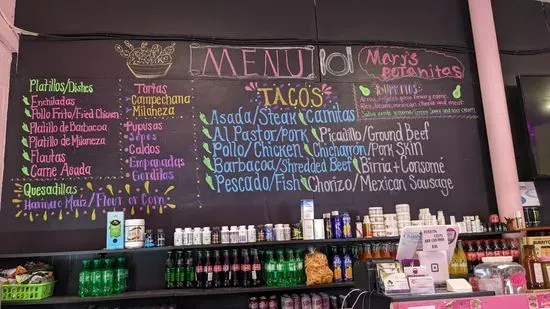 MENU
Mary's
Botanitas
Platillos/Dishes
Enchiladas
Pollo Frito/Fried Chicken
Platillo de Barbacoa
Platillo de Milaneza
Flautas
Carne Asada
Quesadillas
Harina o Maiz/Flour or Corn
Tortas
Campechana
Milaneza
Pupusas
Sopes
Caldos
Empanadas
Gorditas
TACOS
Asada/Steak
Al Pastor/Pork
Pollo/Chicken
Barbacoa/Shredded Beef
Pescado/Fish
Carnitas
Picadillo/Ground Beef
Chicharron/Pork Skin
Birria+Consomé
Chorizo/Mexican Sausage
BURRITOS
Rice, beans, mexican cheese and meat